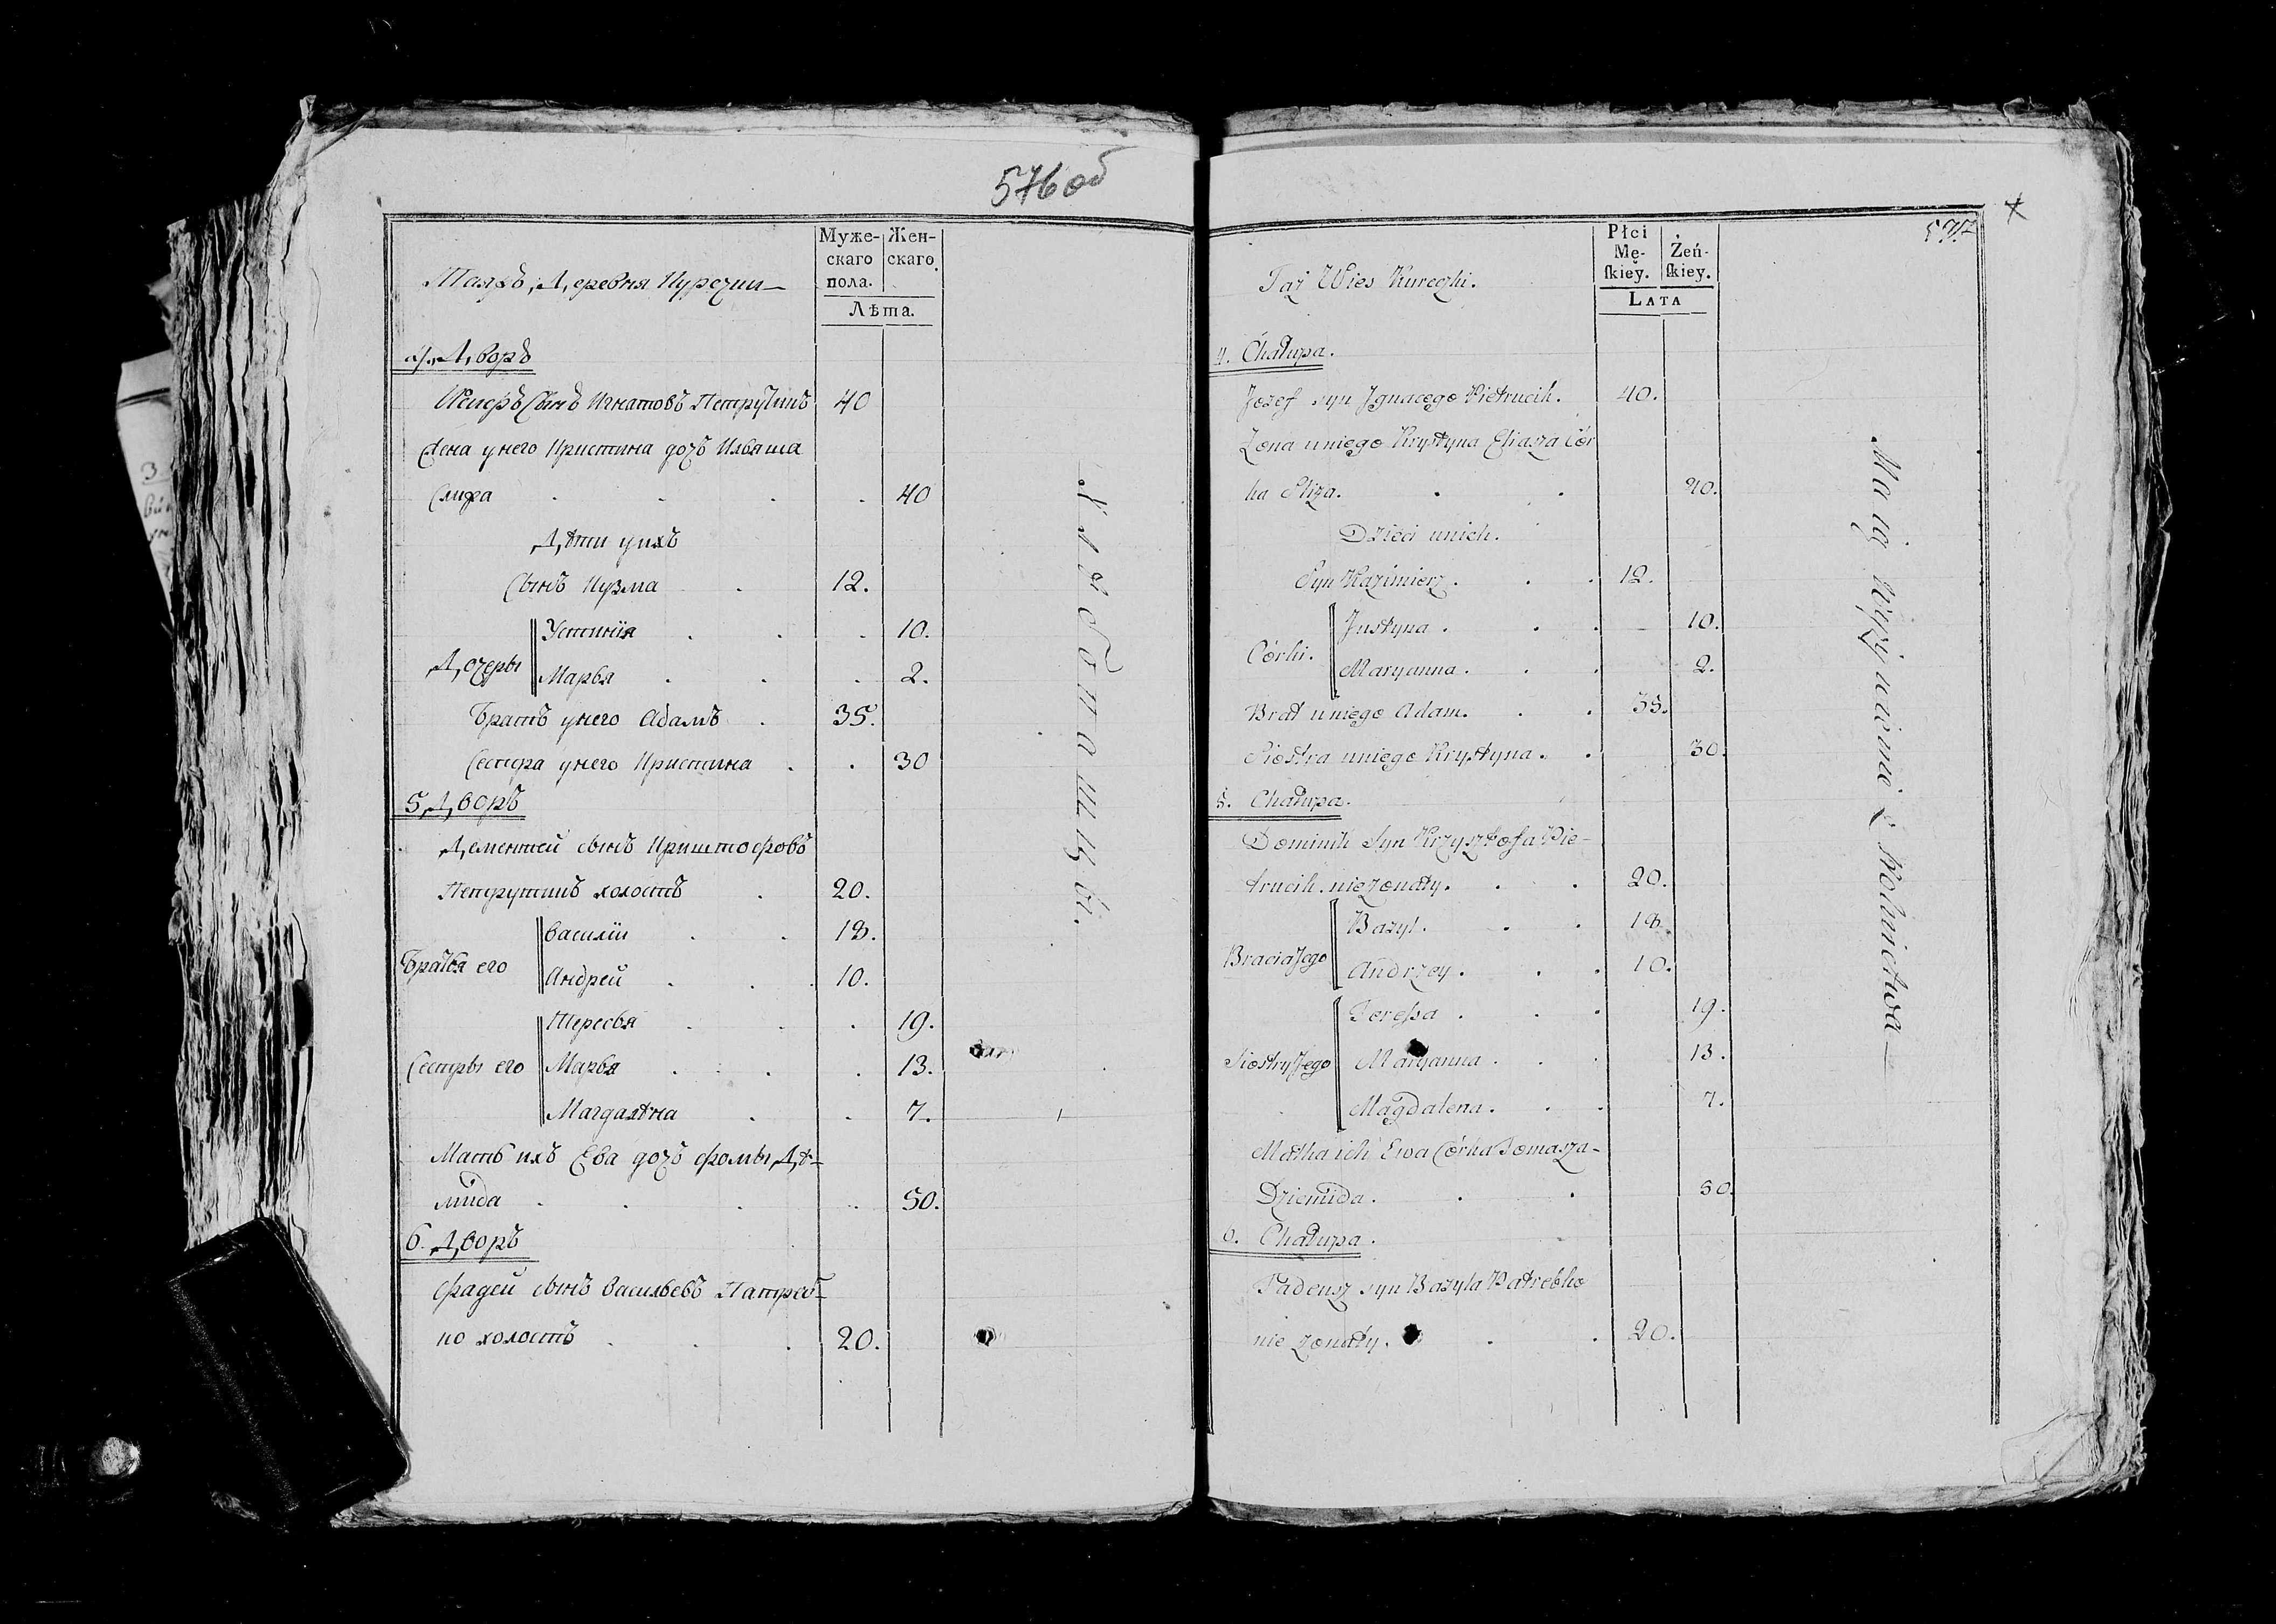 576 об
Муже-
скаго
пола.
Жен-
скаго.
Лѣта.
Таяжъ Деревня Куречки
4. Дворъ
Іосифъ Сынъ Игнатовъ Петрукикъ 40
Жена у него Кристина дочъ Ильяша
Слижа 40
Дѣти у ихъ
Сынъ Кузма 12.
Дочеры
Устинія 10.
Марья 2.
Братъ у него Адамъ 35.
Сестра у него Кристина 30
5 Дворъ
Дементей сынъ Криштофовъ
Петрукикъ холостъ 20.
Братья его
Василій 18.
Андрей 10.
Сестры его
Тересья 19.
Марья 13.
Магдалѣна 7.
Мать ихъ Ева дочъ Фомы Дѣ-
мида 50.
6. Дворъ
Фадей сынъ Васильевъ Патреб-
ко холостъ 20.
Хлѣбопашцы.
577
Płci
Mę-
ſkiey.
Żeń-
ſkiey.
LATA
Taż Wies Kureczki.
4. Chałupa.
Jozef syn Jgnacego Pietrucik. 40.
Zona uniego Krystyna Eliasza Cór
ka Sliza. 40.
Dzieci unich.
Syn Kazimierz. 12.
Córki.
Justyna. 10.
Maryanna. 2.
Brat uniego Adam. 35.
Siostra uniego Krystyna. 30.
5. Chałupa.
Dominik Syn Krzysztofa Pie-
trucik. nie żonaty. 20.
Bracia Jego
Bazyl. 18
Andrzey. 10.
Siostry Jego
Tereſsa. 19.
Maryanna. 13.
Magdalena. 7.
Matka ich Ewa Córka Tomasza-
Dziemida. 50.
6. Chałupa.
Tadeusz syn Bazyla Patrebko
nie żonaty. 20.
Maią Wyżywienie z Rolnictwa—